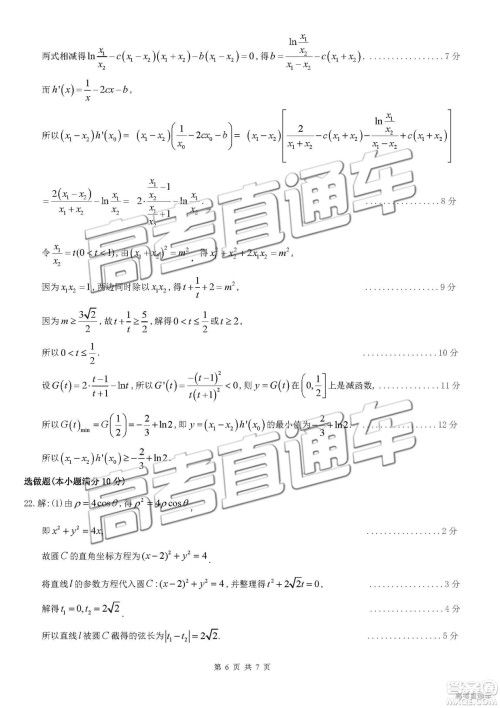 两式相减得ln x₁/x₂ − c(x₁−x₂)(x₁+x₂) − b(x₁−x₂)=0, 得b= (ln x₁/x₂)/(x₁−x₂) − c(x₁+x₂). ………………7 分
而h'(x)=1/x−2cx−b,
所以(x₁−x₂)h'(x₀) = (x₁−x₂)(1/x₀−2cx₀−b) = (x₁−x₂)[2/(x₁+x₂) − c(x₁+x₂) − (ln x₁/x₂)/(x₁−x₂) + c(x₁+x₂)]
= 2(x₁−x₂)/(x₁+x₂) − ln x₁/x₂ = 2·(x₁/x₂−1)/(x₁/x₂+1) − ln x₁/x₂. ………………8 分
令x₁/x₂=t(0<t<1), 由(x₁+x₂)²=m², 得x₁²+x₂²+2x₁x₂=m²,
因为x₁x₂=1, 两边同时除以x₁x₂, 得t+1/t+2=m², ………………9 分
因为m≥3√2/2, 故t+1/t≥5/2, 解得0<t≤1/2或t≥2,
所以0<t≤1/2. ………………10 分
设G(t)=2·(t−1)/(t+1)−lnt, 所以G'(t)=−(t−1)²/(t(t+1)²)<0, 则y=G(t)在(0,1/2]上是减函数, ………………11 分
所以G(t)min=G(1/2)=−2/3+ln2, 即y=(x₁−x₂)h'(x₀)的最小值为−2/3+ln2.
所以(x₁−x₂)h'(x₀)≥−2/3+ln2. ………………12 分
选做题(本小题满分 10 分)
22.解: (1)由ρ=4cosθ, 得ρ²=4ρcosθ,
即x²+y²=4x, ………………2 分
故圆C的直角坐标方程为(x−2)²+y²=4.
将直线l的参数方程代入圆C:(x−2)²+y²=4, 并整理得t²+2√2t=0, ………………3 分
解得t₁=0, t₂=2√2. ………………4 分
所以直线l被圆C截得的弦长为|t₁−t₂|=2√2. ………………5 分
第 6 页 共 7 页
高考直通车